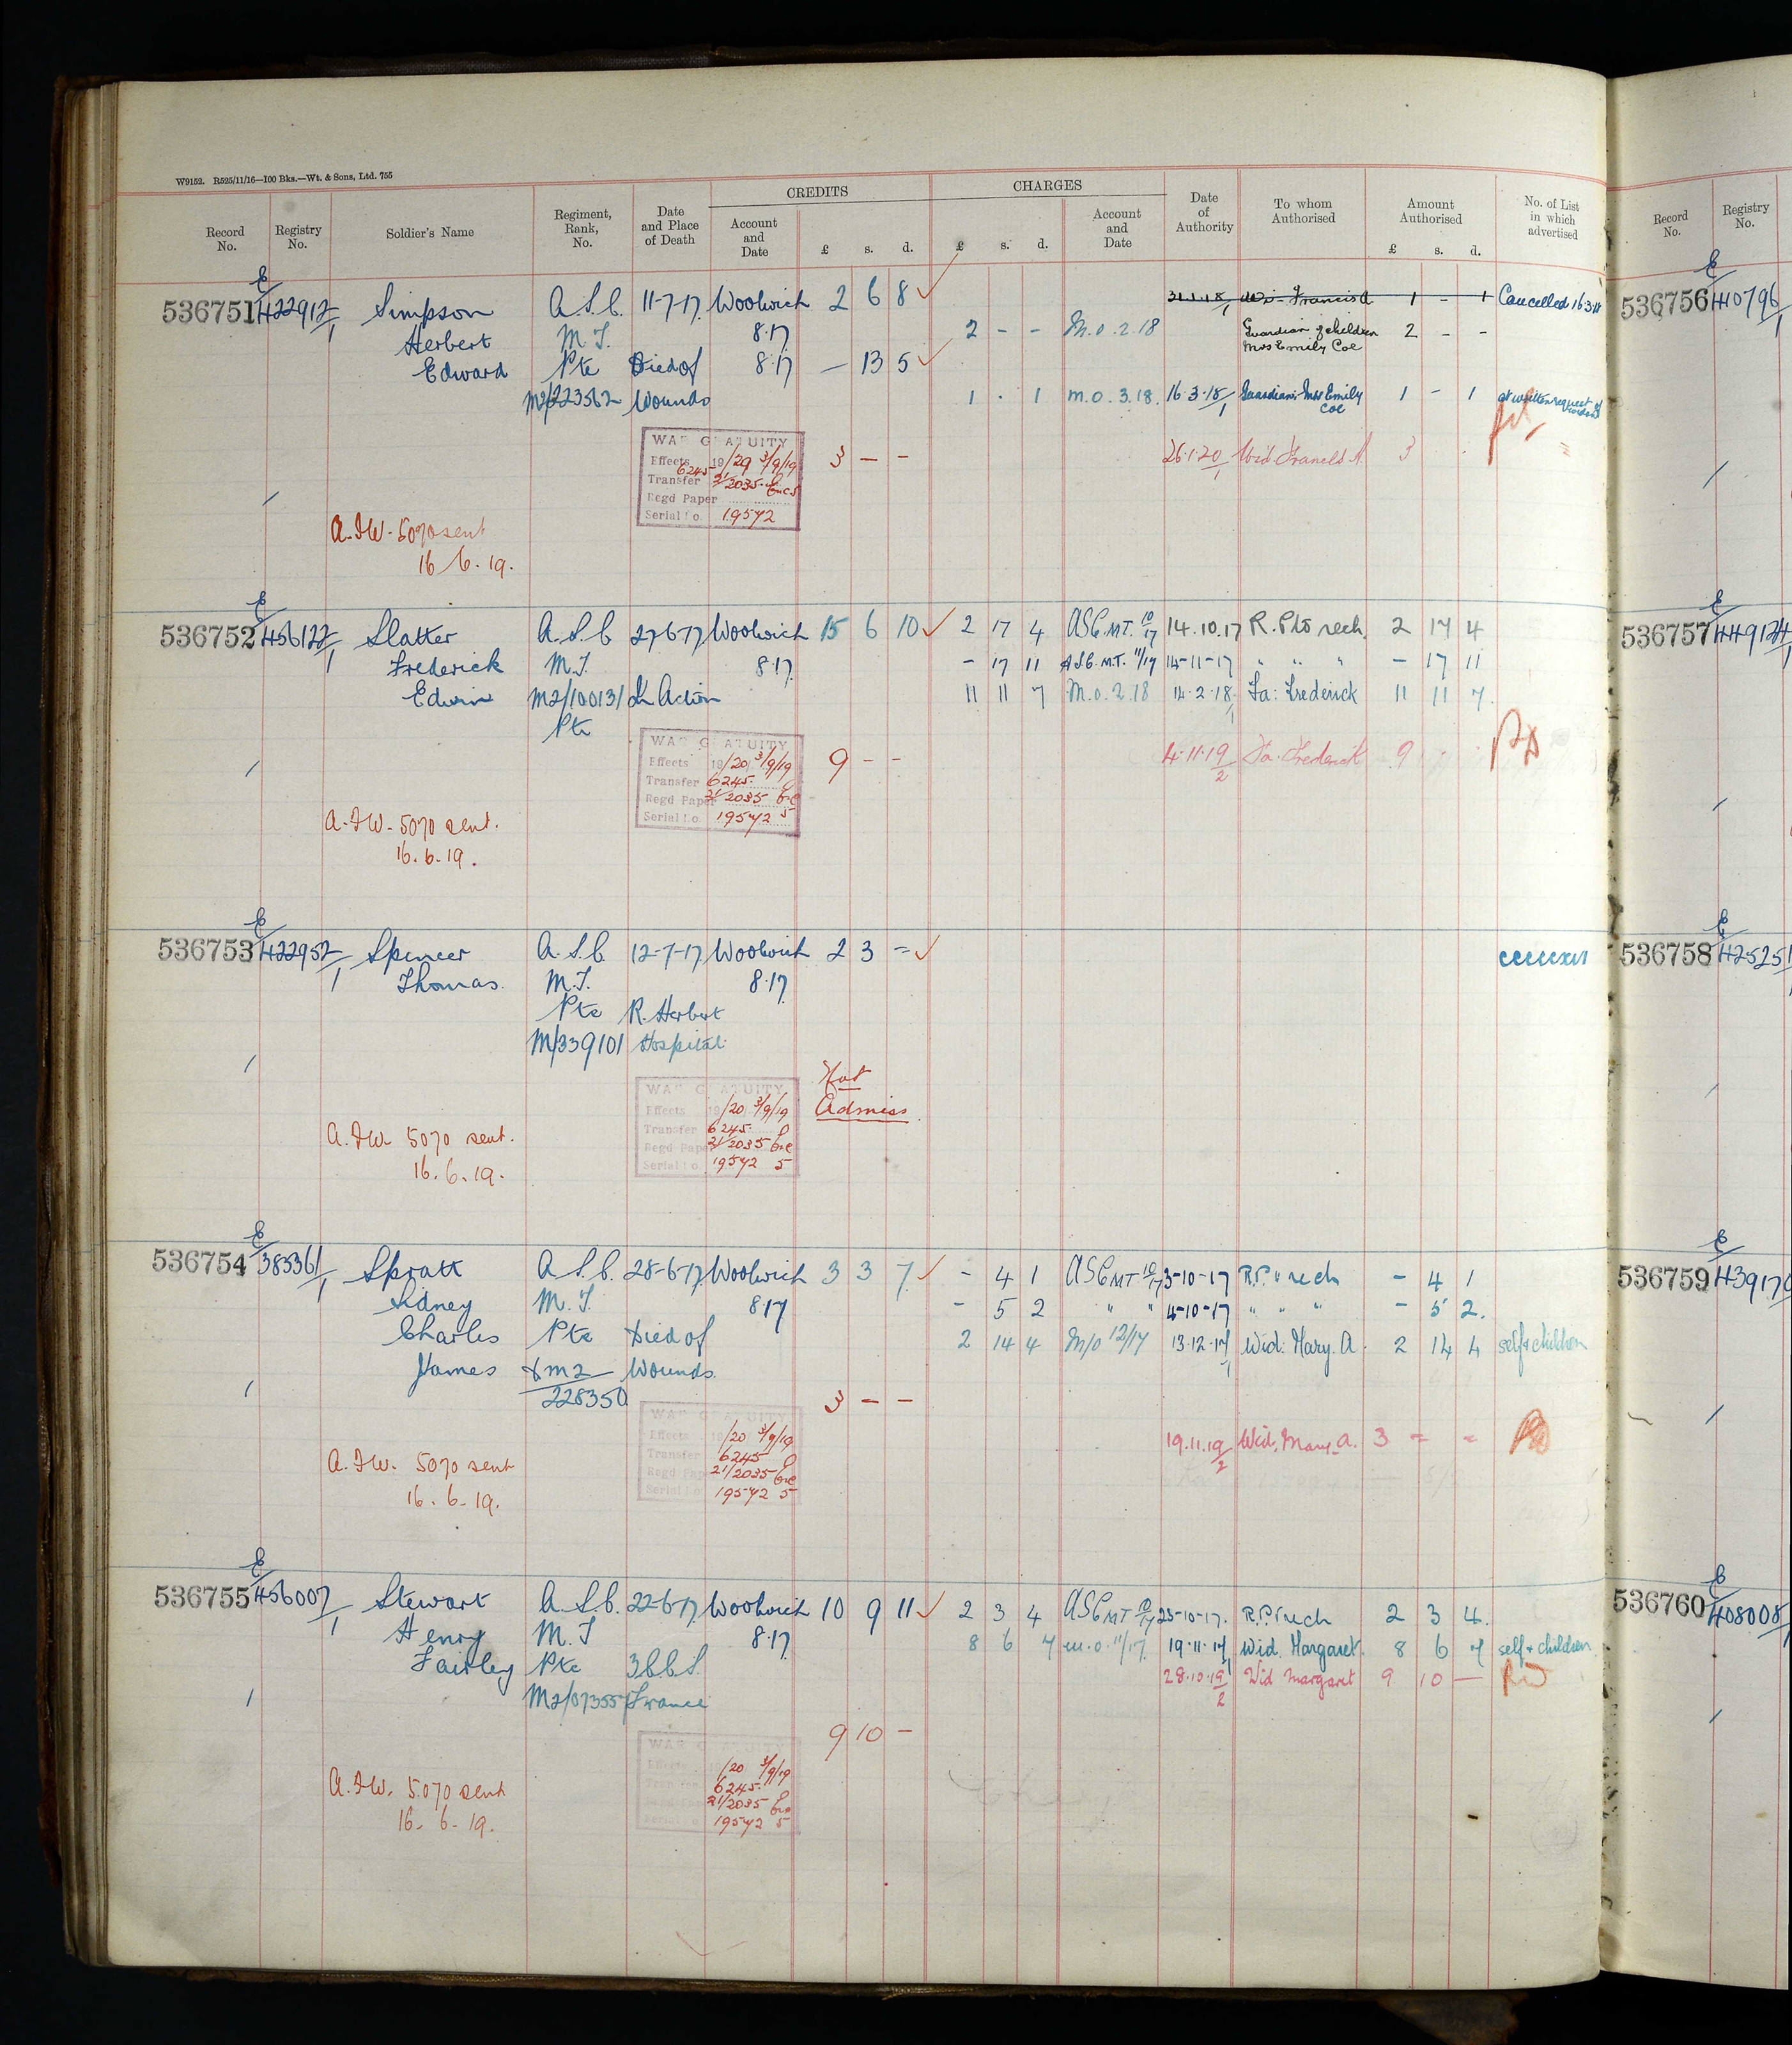 W9152. R525/11/16—100 Bks.—Wt. & Sons, Ltd. 755
CREDITS CHARGES
Record No. Registry No. Soldier's Name Regiment, Rank, No. Date and Place of Death Account and Date £ s. d. £ s. d. Account and Date Date of Authority To whom Authorised Amount Authorised £ s. d. No. of List in which advertised
Record No. Registry No.
E
536751 422912/1 Simpson A.S.C. 11-7-17 Woolwich 2 6 8 31.1.18/1 Wid: Francis A 1 - 1 Cancelled 16.3.18
Herbert M.T. 8.17 2 - - M.O.2.18 Guardian of children Mrs Emily Coe 2 - -
Edward Pte Died of 8.17 - 13 5
M2/223562 Wounds 1 . 1 M.O.3.18. 16.3.18/1 Guardian: Mrs Emily Coe 1 - 1 at written request of widow
WAR GRATUITY
Effects 19/20 3/9/19 3 - - 26.1.20/1 Wid. Francis A. 3
6245
Transfer 21/2035
Regd Paper
Serial No. 19572
A.F.W. 5070 sent
16.6.19.
E
536752 456122/1 Slatter A.S.C 27-6-17 Woolwich 15 6 10 2 17 4 ASC MT. 10/17 14.10.17 R. P to rech. 2 17 4
Frederick M.T. 8.17 - 17 11 A.S.C. M.T. 11/17 14-11-17 " " " - 17 11
Edwin M2/100131 In Action 11 11 7 M.O.2.18 14.2.18/1 Fa: Frederick 11 11 7
Pte
WAR GRATUITY
Effects 19/20 3/9/19 9 - - 4.11.19/2 Fa. Frederick 9
Transfer 6245
Regd Paper 21/2035
Serial No. 19572 5
A.F.W. 5070 sent.
16.6.19.
E
536753 422952/1 Spencer A.S.C. 12-7-17 Woolwich 2 3 - cccccxvi
Thomas. M.T. 8.17
Pte R. Herbert
M/339101 Hospital.
Not
Admiss.
WAR GRATUITY
Effects 19/20 3/9/19
Transfer 6245
Regd Paper 21/2035
Serial No. 19572 5
A.F.W. 5070 sent.
16.6.19.
E
536754 385361/1 Spratt A.S.C. 28-6-17 Woolwich 3 3 7 - 4 1 ASC MT 10/17 3-10-17 R.P. rech - 4 1
Sidney M.T. 8.17 - 5 2 " " 4-10-17 " " " - 5 2.
Charles Pte Died of 2 14 4 M/O 12/17 13.12.17/1 Wid: Mary. A. 2 14 4 self & children
James M2 Wounds.
228350 3 - -
WAR GRATUITY
Effects 19/20 3/9/19 19.11.19/2 Wid. Mary. A. 3 - -
Transfer 6245
Regd Paper 21/2035
Serial No. 19572 5
A.F.W. 5070 sent
16.6.19.
E
536755 456007/1 Stewart A.S.C. 22-6-17 Woolwich 10 9 11 2 3 4 ASC MT 10/17 23-10-17. R.P. rech 2 3 4.
Henry M.T 8.17 8 6 7 M.O. 11/17 19.11.17/1 Wid. Margaret. 8 6 7 self & children
Fairley Pte 3 C C S. 28.10.19/2 Wid Margaret 9 10 -
M2/073557 France
9 10 -
WAR GRATUITY
Effects 19/20 3/9/19
Transfer 6245
21/2035
19572 5
A.F.W. 5070 sent
16.6.19.
E
536756
E
536757
E
536758
E
536759
E
536760